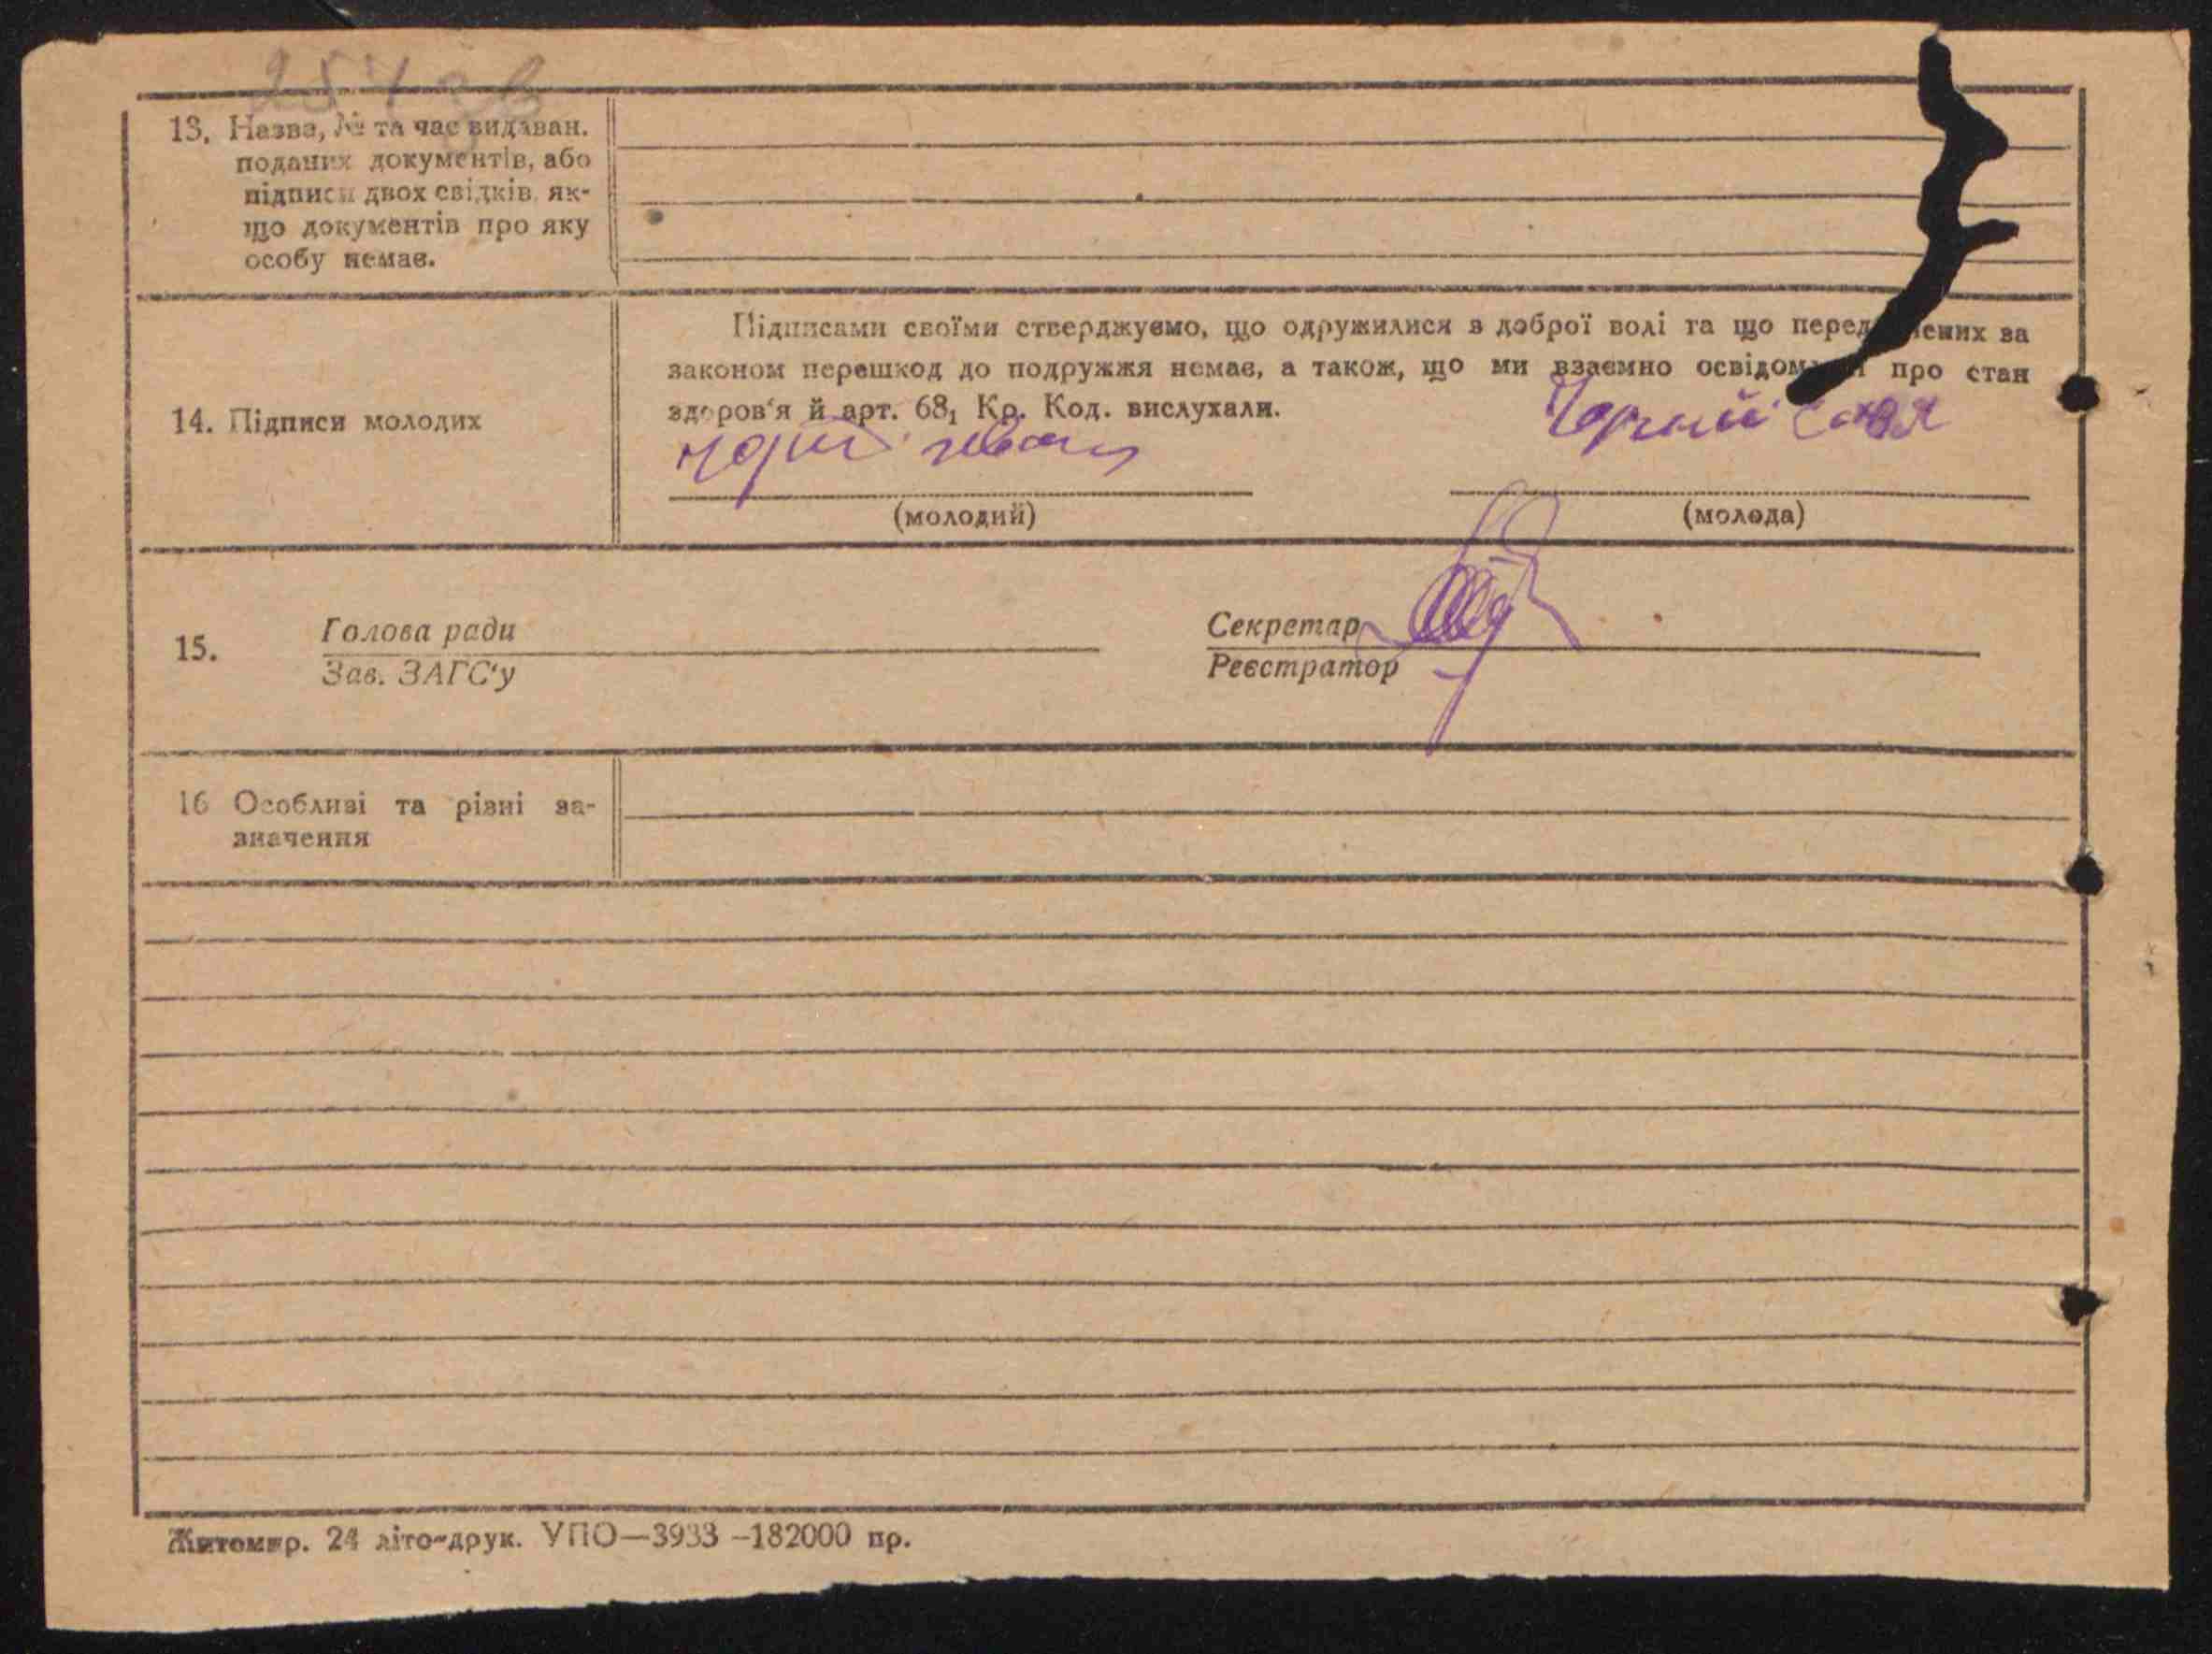 13. Назва, № та час видаван.
поданих документів, або
підписи двох свідків, як-
що документів про яку
особу немає.
14. Підписи молодих
Підписами своїми стверджуємо, що одружилися з доброї волі та що перед чених за
законом перешкод до подружжя немає, а також, що ми взаємно освідом про стан
здоров'я й арт. 68₁ Кр. Код. вислухали.
Чорній Соня
(молодий) (молода)
15. Голова ради
Зав. ЗАГС'у
Секретар
Реєстратор
16 Особливі та різні за-
значення
Житомир. 24 літо-друк. УПО—3933 —182000 пр.